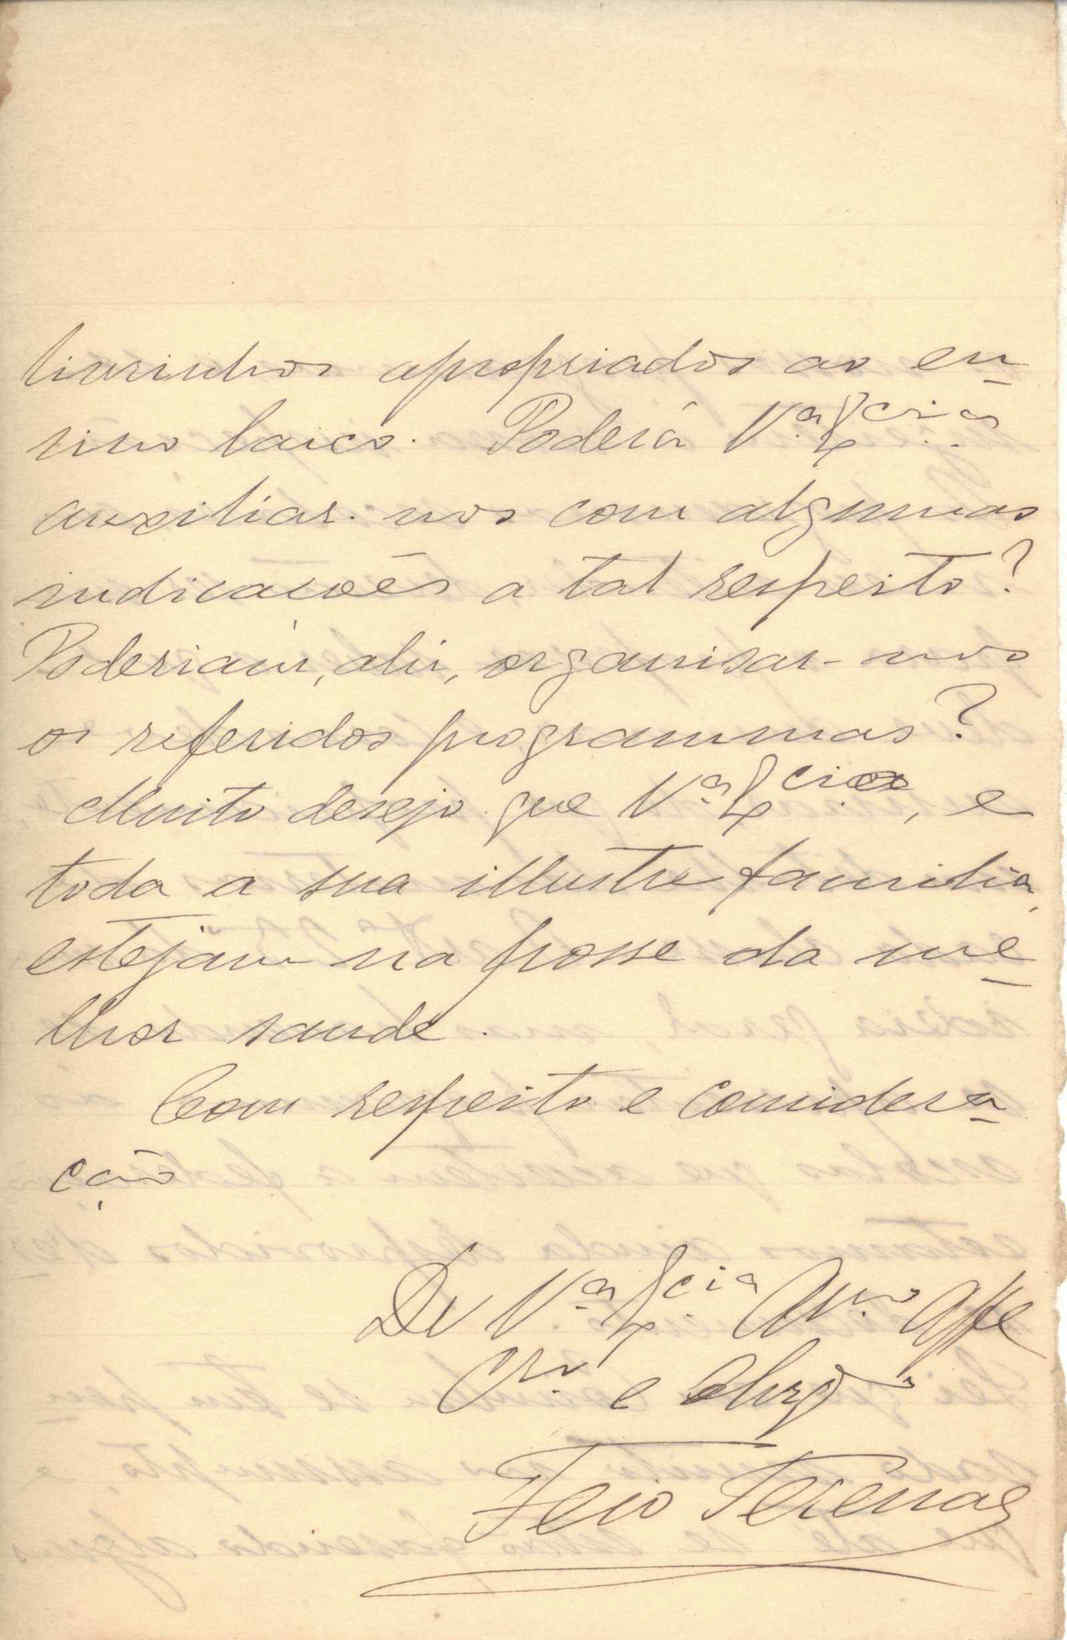 livrinhos apropriados ao en-
sino laico. Poderá V.ª Ex.cia
auxiliar-nos com algumas
indicacoẽs a tal respeito?
Poderiam, ahi, organisar-nos
os referidos programmas?
Muito desejo que V.ª Ex.cia, e
toda a sua illustre familia,
estejam na posse da me-
lhor saude.
Com respeito e considera-
ção
De V.ª Ex.cia Am.º Affe
Cr.º e Obrg.º
Feio Terenas